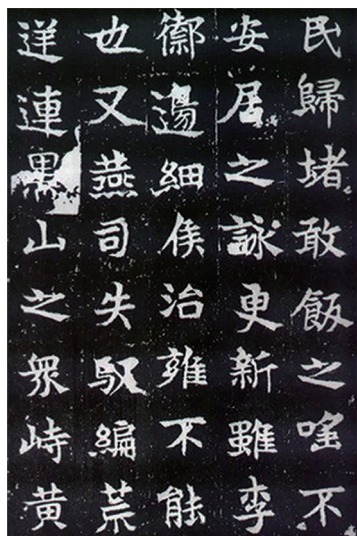 民歸堵敢飯之不
安居之詠更新雖李
禦邊細侯治雍不能
也又燕司失馭編荒
逆連黑山之眾峙黃